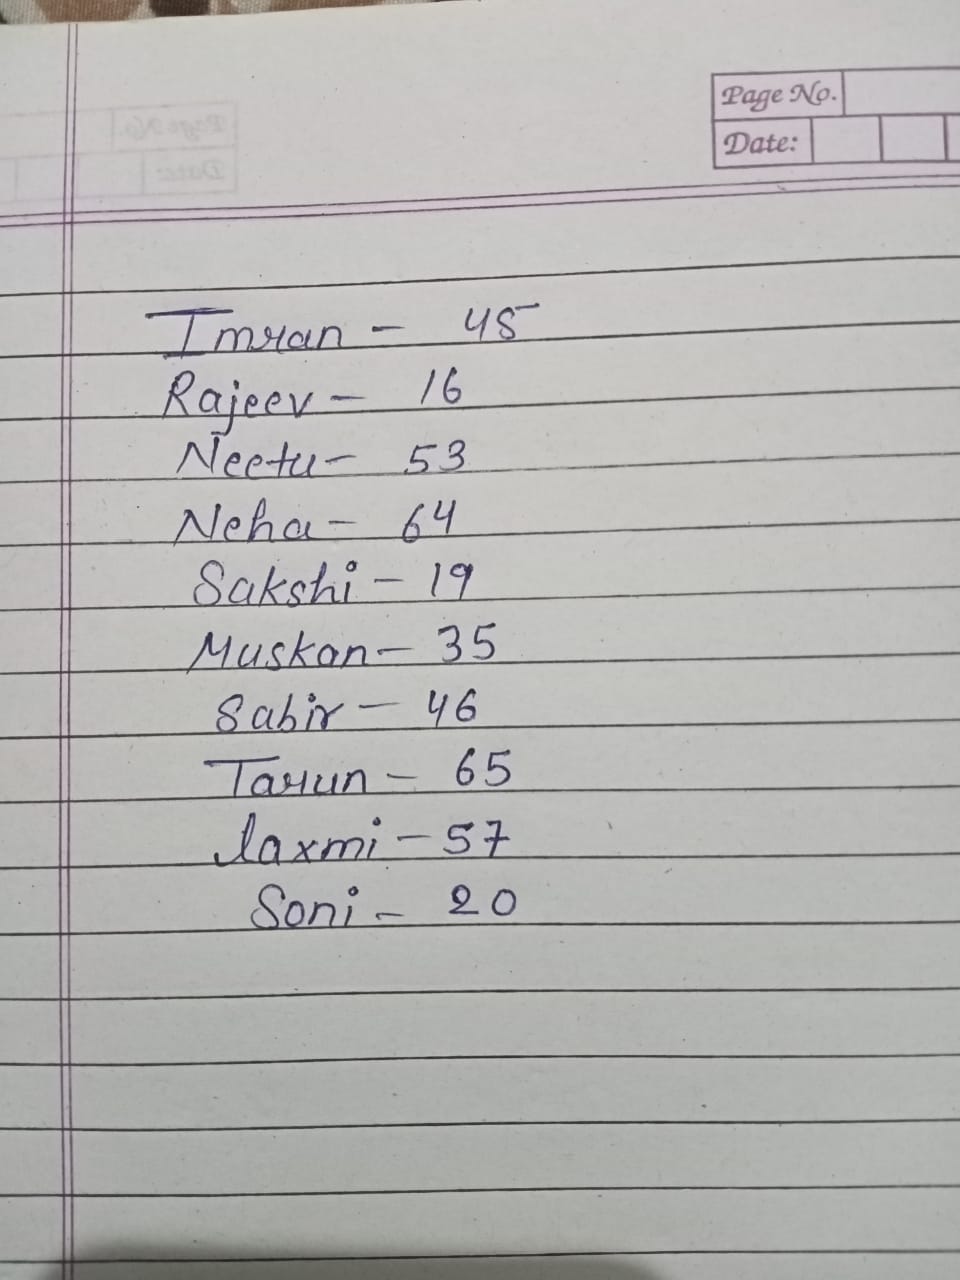 Page No.
Date:
Imran - 45
Rajeev - 16
Neetu - 53
Neha - 64
Sakshi - 19
Muskan - 35
Sabir - 46
Tarun - 65
laxmi - 57
Soni - 20